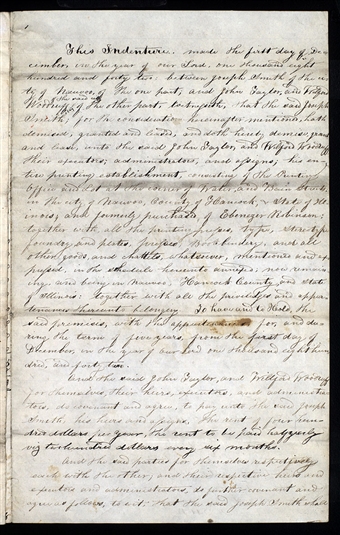 This Indenture. made the first day of De-
cember, in the year of our Lord, one thousand eight
hundred and forty two; between Joseph Smith of the ci-
ty of Nauvoo, of the one part, and John Taylor, and Wilford
Woodruff of the other part; that the said Joseph
Smith, for the consideration hereinafter mentioned, hath
demised, granted and leased, and doth hereby demise, grant
and lease, unto the said John Taylor, and Wilford Woodruff
their executors, administrators, and assigns, his en-
tire printing establishment, consisting of the Printing
Office and lot at the corner of Water, and Main Streets,
in the city of Nauvoo, County of Hancock, & State of Il-
linois; and formerly purchased, of Ebenezer Robinson;
together with all the printing presses, type, Stereotype
foundry, and plates, bookbindery, and all
other goods, and chattels, whatsoever, mentioned and ex-
pressed, in the schedule hereunto annexed; now remain-
ing and being in Nauvoo, Hancock County, and State
of Illinois: together with all the privileges and appur-
tenances thereunto belonging. To have and to Hold, the
said premises, with the appurtenances for, and du-
ring the term of five years, from the first day of
December, in the year of our Lord one thousand eight hun-
dred, and forty two.
And the said John Taylor, and Wilford Woodruff
for themselves, their heirs, executors, and administra-
tors, do covenant and agree, to pay unto the said Joseph
Smith, his heirs and assigns. The rent of four hun-
dred dollars per year, the rent to be paid half yearly
viz two hundred dollars every six months.
And the said parties for themselves respectively
each with the other, and their respective heirs and
executors and administrators, do further covenant and
agree as follows, to wit: that the said Joseph Smith shall